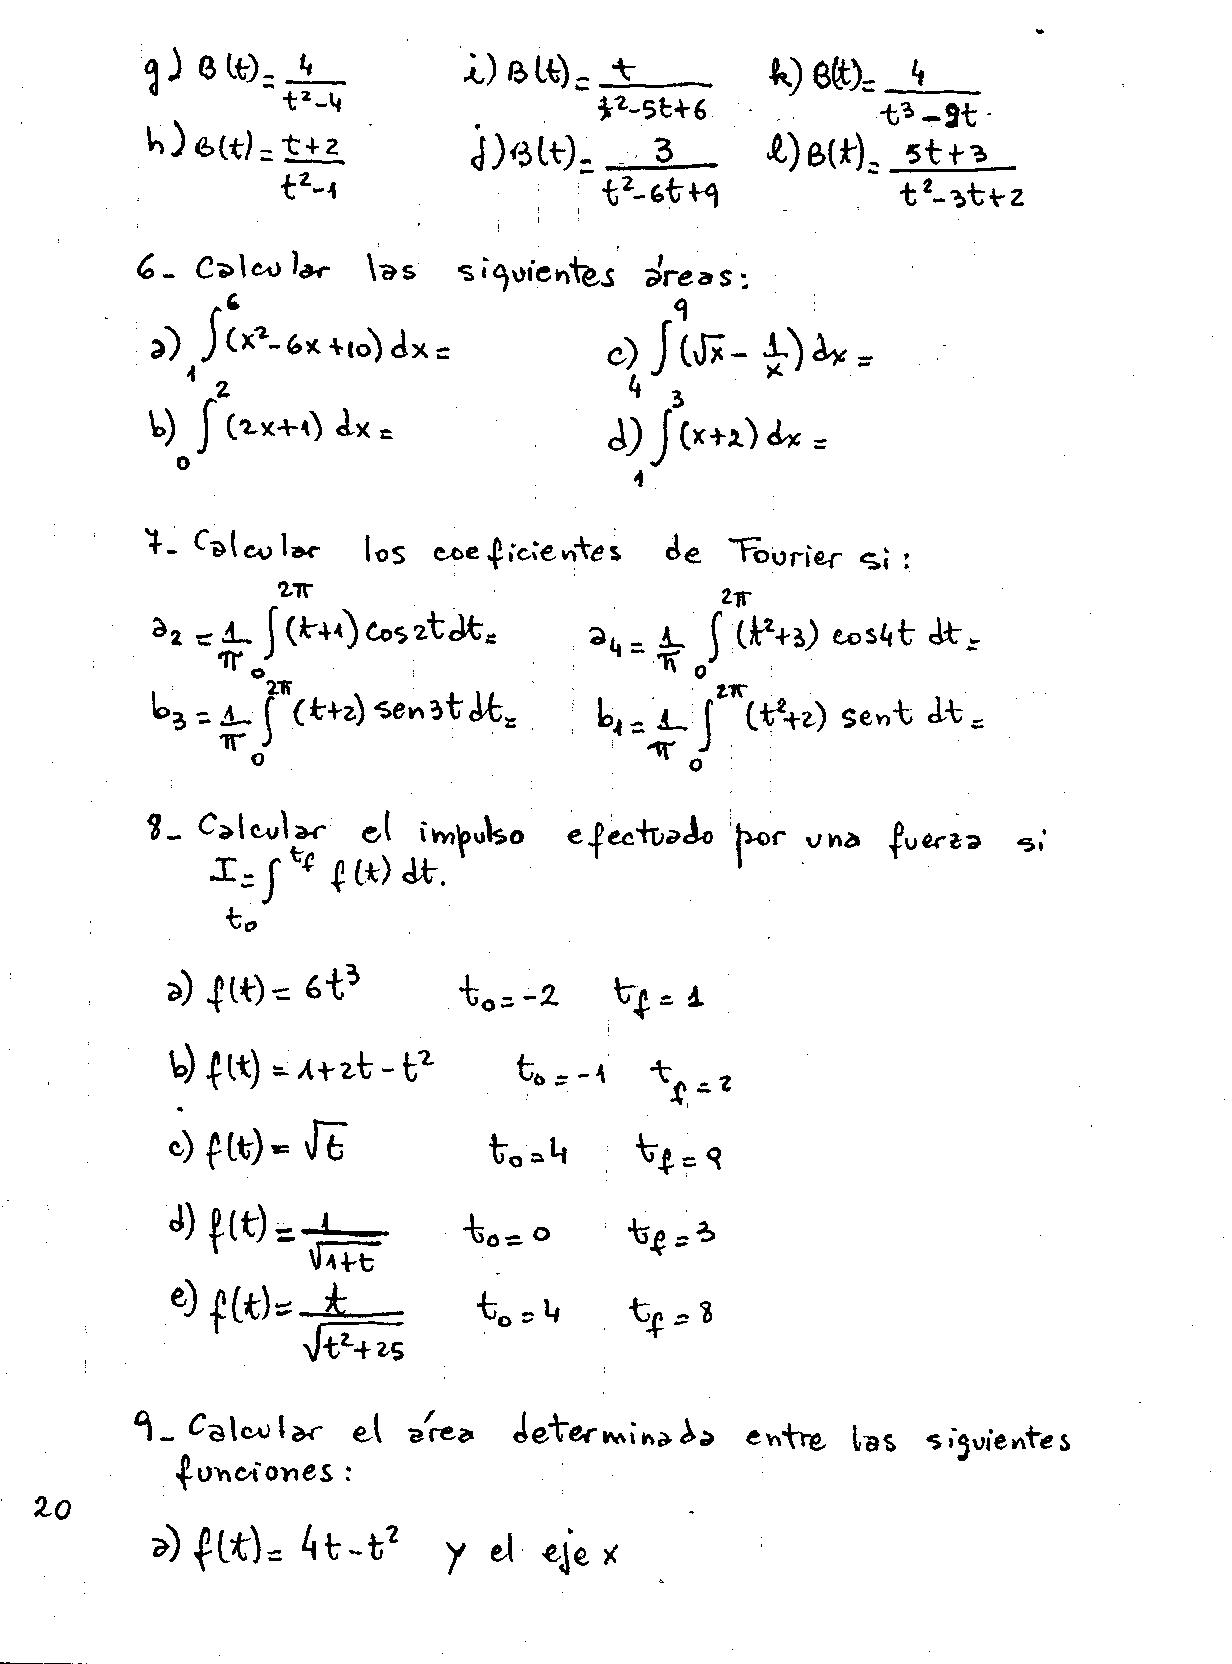 g) B(t)= 4/(t²-4)   i) B(t)= t/(t²-5t+6)   k) B(t)= 4/(t³-9t)
h) B(t)= (t+2)/(t²-1)   j) B(t)= 3/(t²-6t+9)   l) B(t)= (5t+3)/(t²-3t+2)
6- Calcular las siguientes áreas:
a) ∫₁⁶ (x²-6x+10) dx=   c) ∫₄⁹ (√x - 1/x) dx=
b) ∫₀² (2x+1) dx=   d) ∫₁³ (x+2) dx=
7- Calcular los coeficientes de Fourier si:
a₂ = 1/π ∫₀^2π (t+1) cos2t dt=   a₄= 1/π ∫₀^2π (t²+3) cos4t dt=
b₃ = 1/π ∫₀^2π (t+2) sen3t dt=   b₁= 1/π ∫₀^2π (t²+2) sent dt=
8- Calcular el impulso efectuado por una fuerza si
I= ∫_t₀^tf f(t) dt.
a) f(t)= 6t³   t₀=-2   tf=1
b) f(t)= 1+2t-t²   t₀=-1   tf=2
c) f(t)= √t   t₀=4   tf=9
d) f(t)= 1/√(1+t)   t₀=0   tf=3
e) f(t)= t/√(t²+25)   t₀=4   tf=8
9- Calcular el área determinada entre las siguientes
funciones:
20
a) f(t)= 4t-t² y el eje x